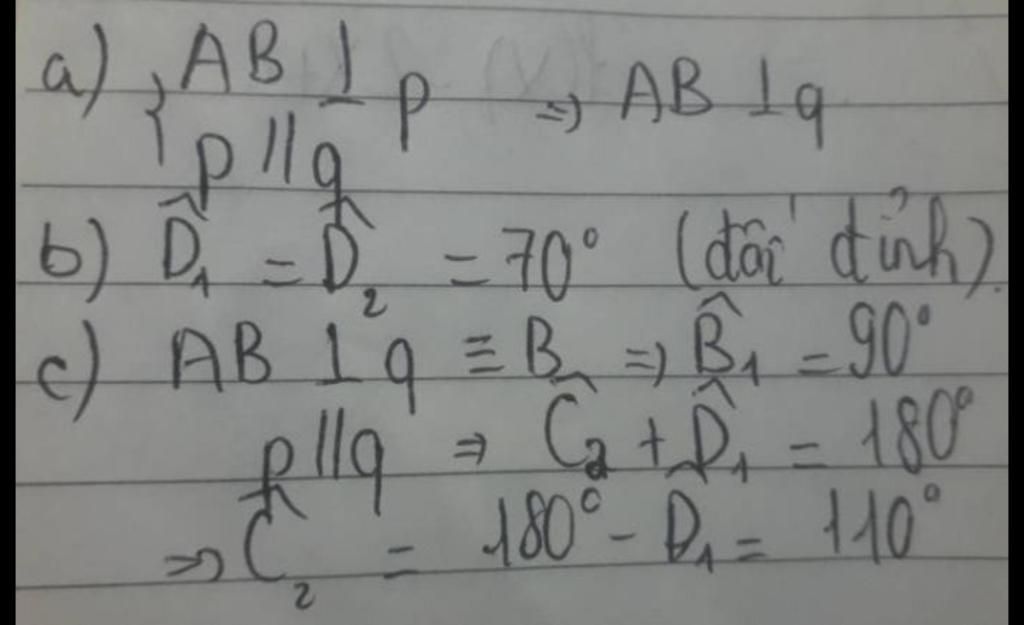 a) { AB ⊥ p ⇒ AB ⊥ q
p // q
b) D̂₁ = D̂₂ = 70° (đối đỉnh).
c) AB ⊥ q ≡ B ⇒ B̂₁ = 90°
p // q ⇒ Ĉ₂ + D̂₁ = 180°
⇒ Ĉ₂ = 180° - D₁ = 110°